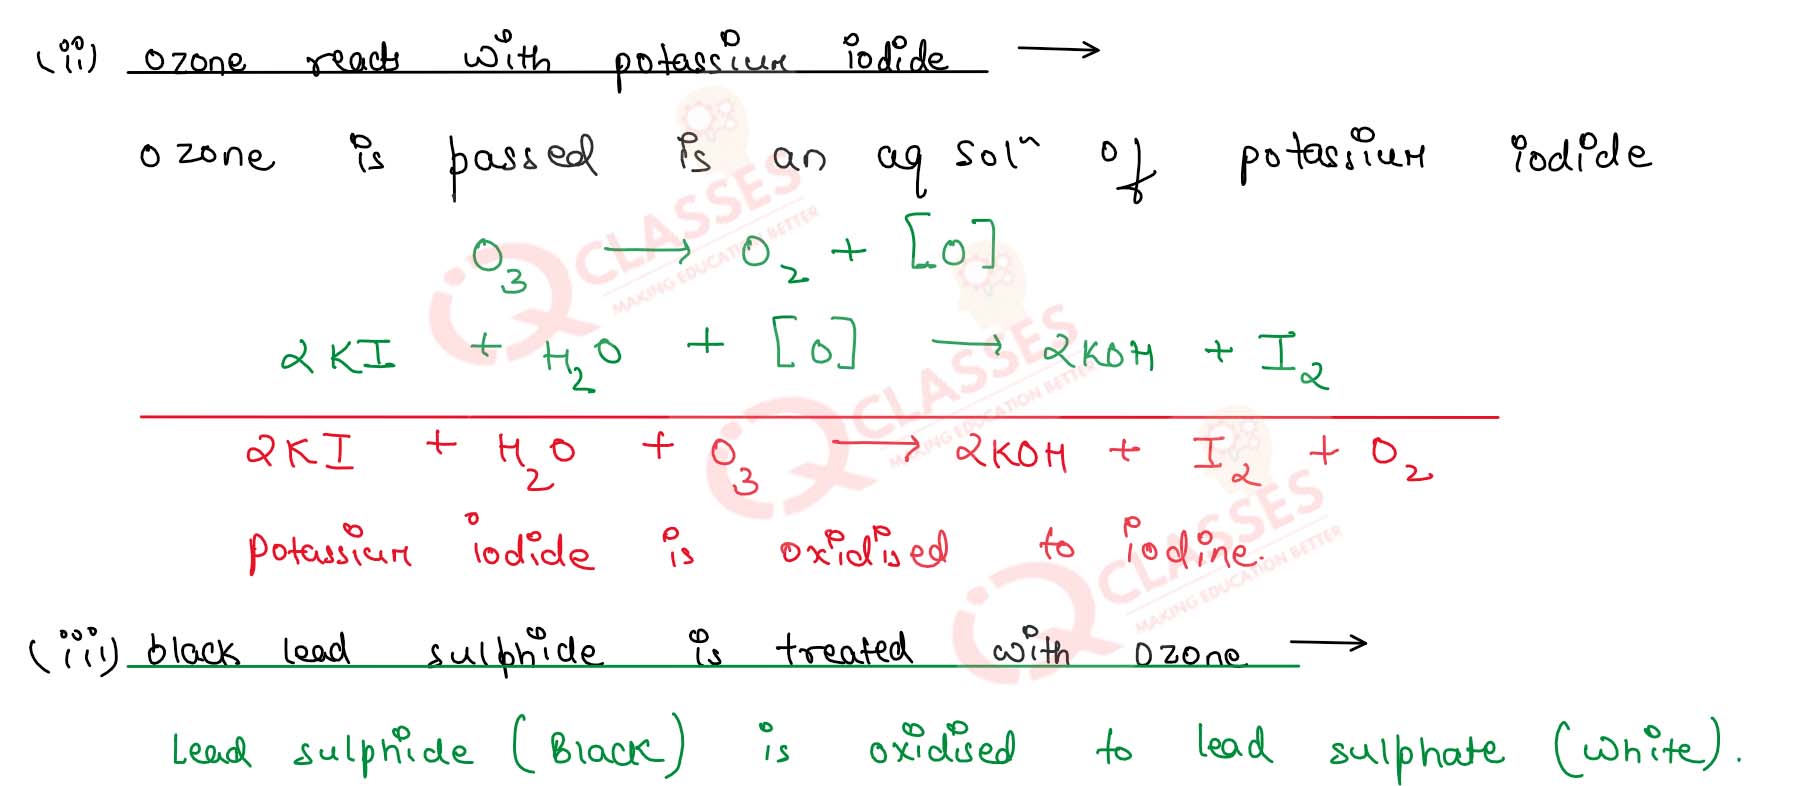 (ii) ozone reacts with potassium iodide →
ozone is passed is an aq solⁿ of potassium iodide
O₃ → O₂ + [O]
2KI + H₂O + [O] → 2KOH + I₂
2KI + H₂O + O₃ → 2KOH + I₂ + O₂
potassium iodide is oxidised to iodine.
(iii) black lead sulphide is treated with ozone →
Lead sulphide (Black) is oxidised to lead sulphate (white).
CLASSES
MAKING EDUCATION BETTER
CLASSES
MAKING EDUCATION BETTER
CLASSES
MAKING EDUCATION BETTER